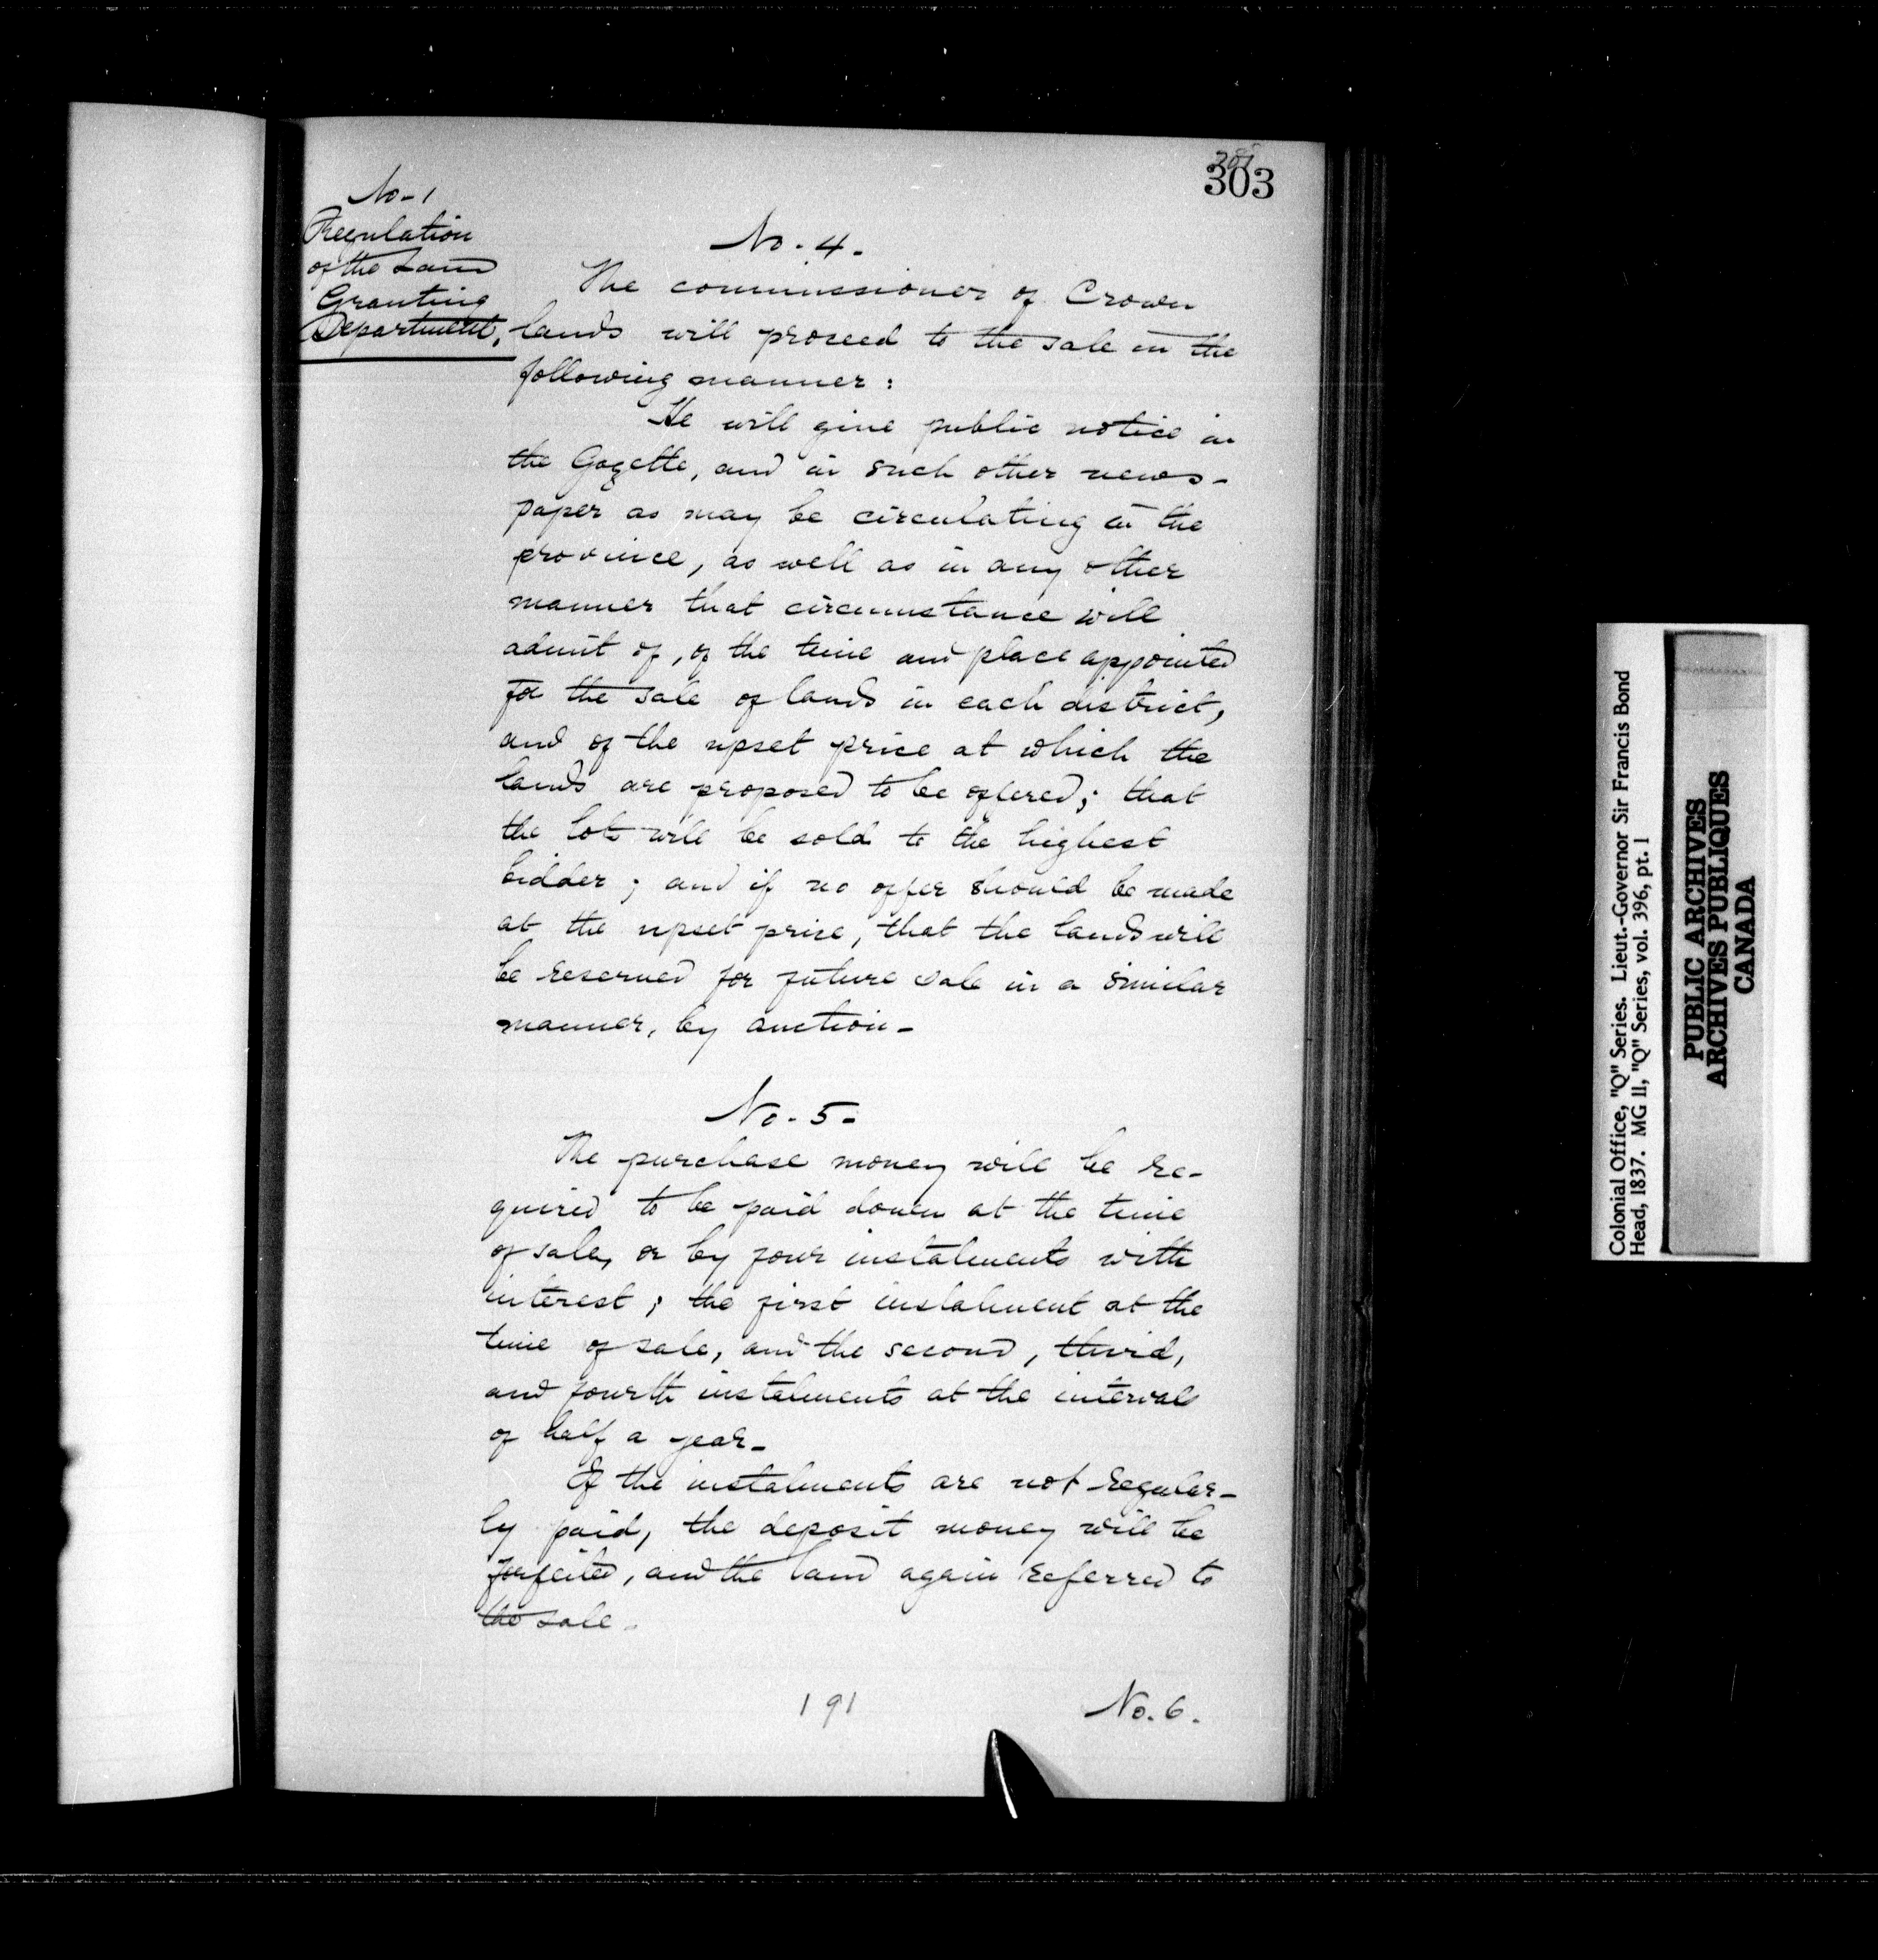 303
No-1
Regulation
of the Land
Granting
Department.
No. 4.
The commissioner of Crown
lands will proceed to the sale in the
following manner:
He will give public notice in
the Gazette, and in such other news-
paper as may be circulating in the
province, as well as in any other
manner that circumstance will
admit of, of the time and place appointed
for the sale of lands in each district,
and of the upset price at which the
lands are proposed to be offered; that
the lots will be sold to the highest
bidder; and if no offer should be made
at the upset price, that the lands will
be reserved for future sale in a similar
manner, by auction-
No. 5-
The purchase money will be re-
quired to be paid down at the time
of sale, or by four instalments with
interest; the first instalment at the
time of sale, and the second, third,
and fourth instalments at the intervals
of half a year-
If the instalments are not regular-
ly paid, the deposit money will be
forfeited, and the land again referred to
the sale.
191
No. 6.
Colonial Office, "Q" Series. Lieut.-Governor Sir Francis Bond
Head, 1837. MG 11, "Q" Series, vol. 396, pt. 1
PUBLIC ARCHIVES
ARCHIVES PUBLIQUES
CANADA